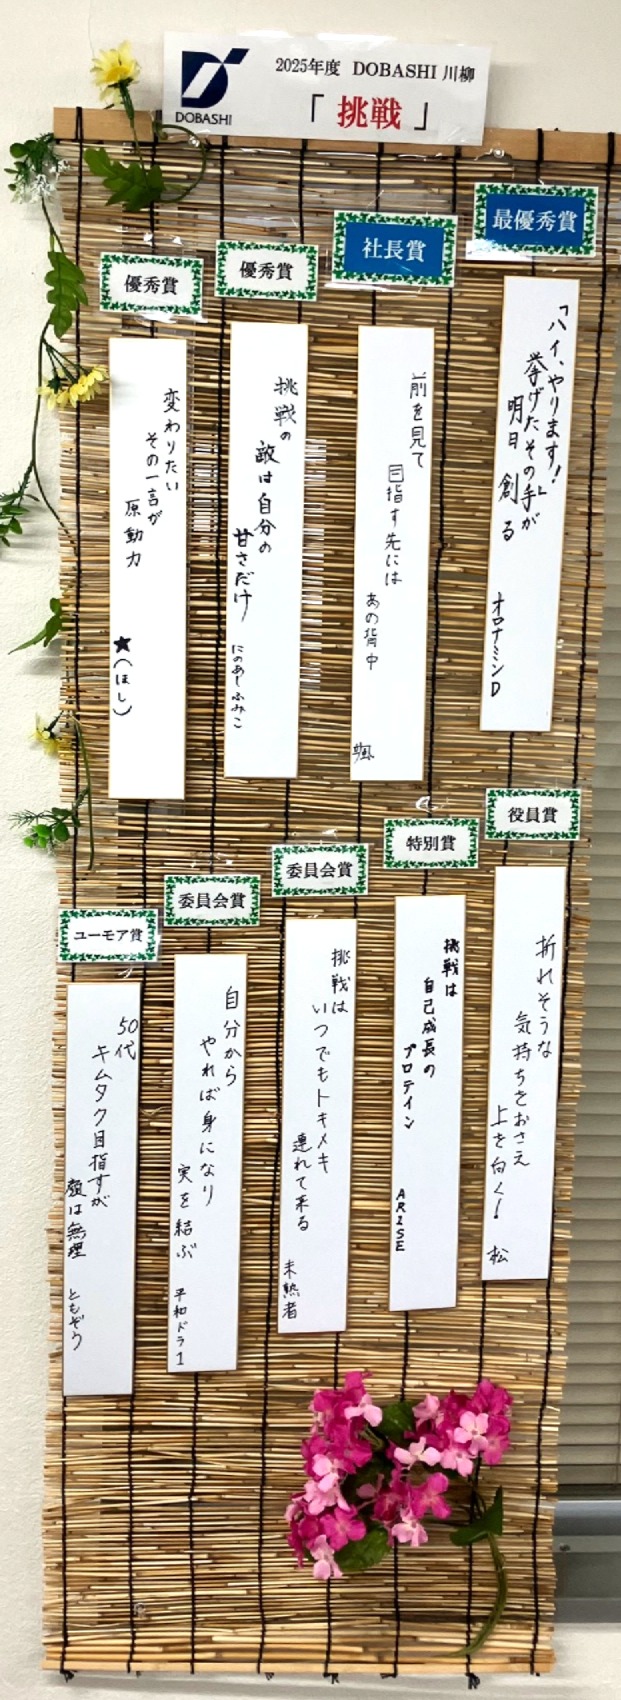 DOBASHI
2025年度 DOBASHI 川柳
「挑戦」
最優秀賞
「ハイ、やります!」
挙げたその手が
明日創る
オロナミンD
社長賞
前を見て
目指す先には
あの背中
颯
優秀賞
挑戦の
敵は自分の
甘さだけ
にのあしふみこ
優秀賞
変わりたい
その一言が
原動力
★(ほし)
役員賞
折れそうな
気持ちをおさえ
上を向く!
松
特別賞
挑戦は
自己成長の
プロテイン
ARISE
委員会賞
挑戦は
いつでもトキメキ
連れて来る
未熟者
委員会賞
自分から
やれば身になり
実を結ぶ
平和ドラ1
ユーモア賞
50代
キムタク目指すが
顔は無理
ともぞう